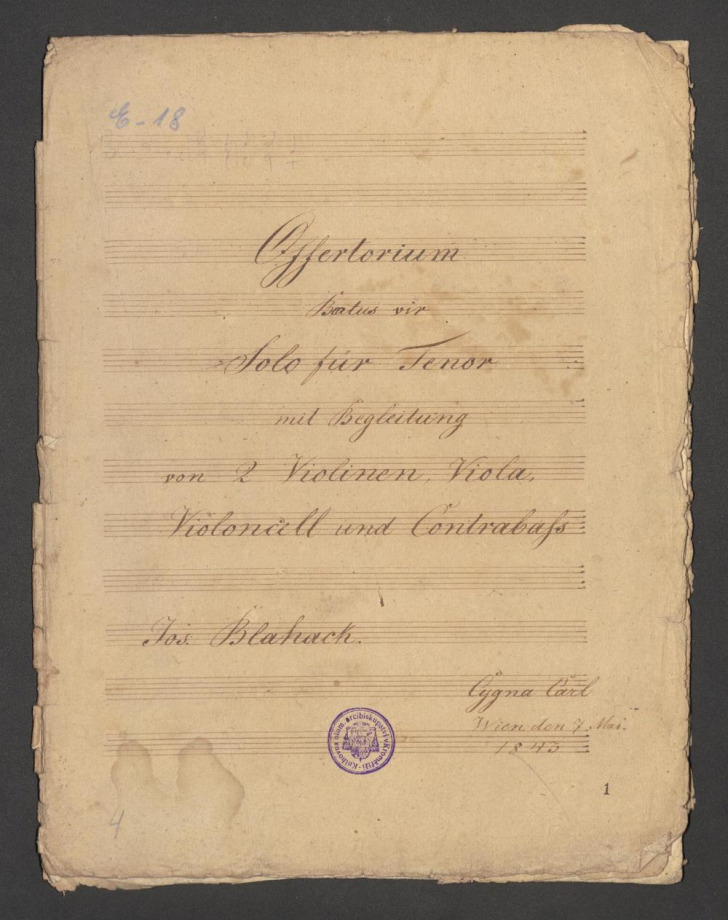 E-18
Offertorium
Beatus vir
Solo für Tenor
mit Begleitung
von 2 Violinen, Viola,
Violoncell und Contrabaſs
Jos. Blahack.
Cygna Carl
Wien den 7. Mai.
1843
Knihovna olom. arcibiskupství v Kroměříži
1
4